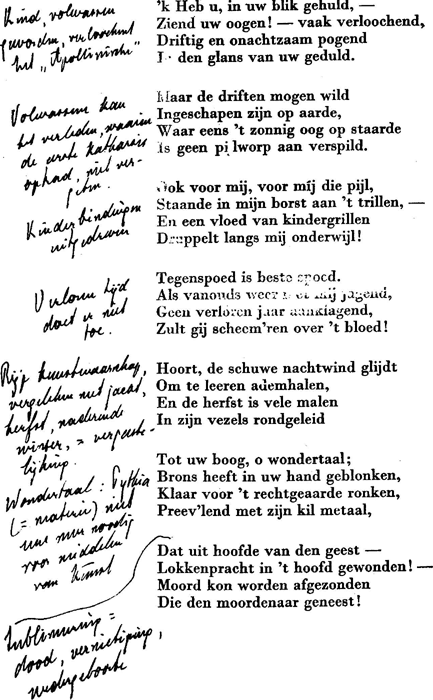 'k Heb u, in uw blik gehuld, —
Ziend uw oogen! — vaak verloochend,
Driftig en onachtzaam pogend
den glans van uw geduld.
Maar de driften mogen wild
Ingeschapen zijn op aarde,
Waar eens 't zonnig oog op staarde
Is geen pijlworp aan verspild.
Ook voor mij, voor mij die pijl,
Staande in mijn borst aan 't trillen, —
En een vloed van kindergrillen
Druppelt langs mij onderwijl!
Tegenspoed is beste spoed.
Als vanouds weer met mij jagend,
Geen verloren jaar aanklagend,
Zult gij scheem'ren over 't bloed!
Hoort, de schuwe nachtwind glijdt
Om te leeren ademhalen,
En de herfst is vele malen
In zijn vezels rondgeleid
Tot uw boog, o wondertaal;
Brons heeft in uw hand geblonken,
Klaar voor 't rechtgeaarde ronken,
Preev'lend met zijn kil metaal,
Dat uit hoofde van den geest —
Lokkenpracht in 't hoofd gewonden! —
Moord kon worden afgezonden
Die den moordenaar geneest!
Kind, volwassen
geworden, verloochent
het „Apollinische"
Volwassene kan
het verleden, waarin
de eerste katharsis
ophad, niet ver-
Kinderbindingen
uitgedreven
Verloren tijd
doet er niet
toe.
Rijp kunstenaarschap,
vergeleken met jacht,
herfst, naderende
winter, =
lijking.
Wondertaal: Pythia
(= materie) niet
meer nodig
voor middelen
van kunst
Sublimering =
dood, vernietiging,
wedergeboorte